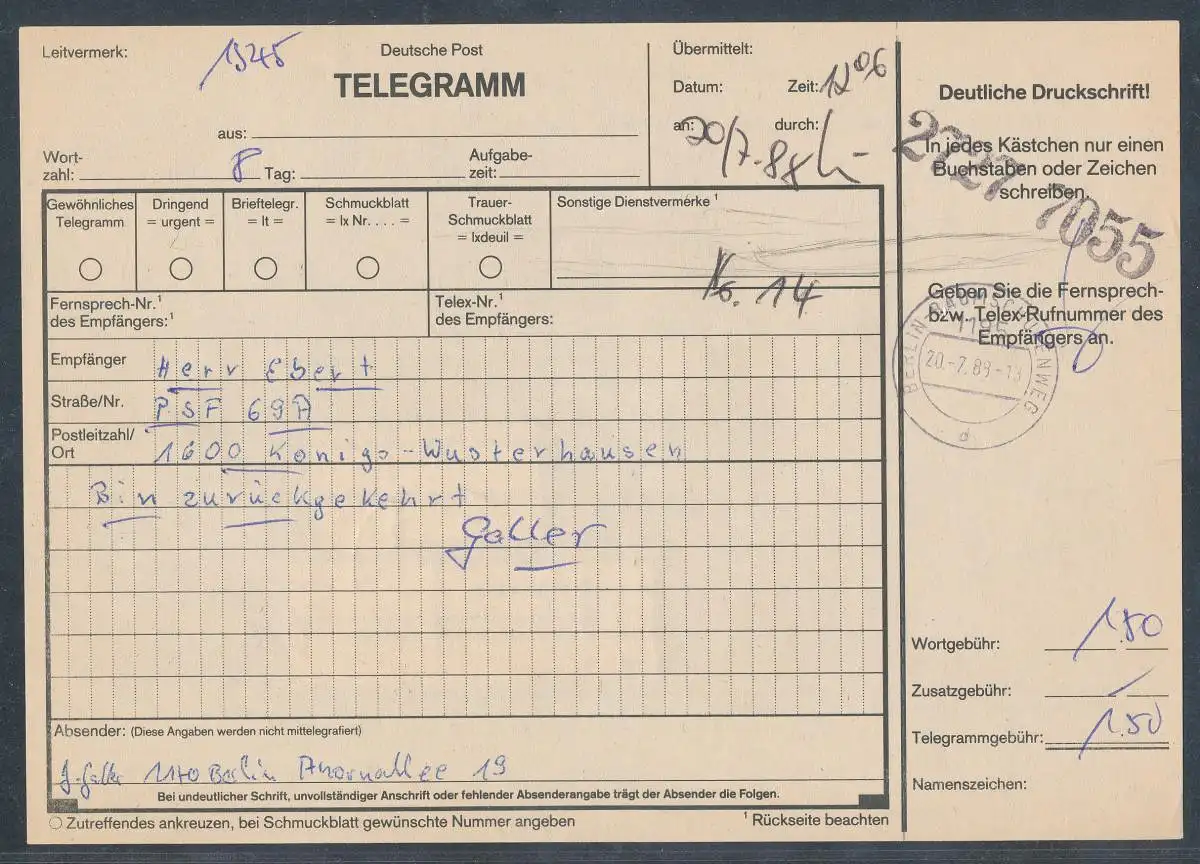 Leitvermerk:
1945
Deutsche Post
TELEGRAMM
aus:
Wort-
zahl: 8 Tag:
Aufgabe-
zeit:
Übermittelt:
Datum: Zeit: 12 06
an: durch:
20/7.88
Gewöhnliches
Telegramm
Dringend
= urgent =
Brieftelegr.
= lt =
Schmuckblatt
= lx Nr. . . . =
Trauer-
Schmuckblatt
= lxdeuil =
Sonstige Dienstvermerke ¹
14
Fernsprech-Nr.¹
des Empfängers:¹
Telex-Nr.¹
des Empfängers:
Empfänger Herr Ebert
Straße/Nr. PSF 69A
Postleitzahl/
Ort 1600 Königs-Wusterhausen
Bin zurückgekehrt
Galler
Absender: (Diese Angaben werden nicht mittelegrafiert)
J. Galler 1170 Berlin Ahornallee 19
Bei undeutlicher Schrift, unvollständiger Anschrift oder fehlender Absenderangabe trägt der Absender die Folgen.
Zutreffendes ankreuzen, bei Schmuckblatt gewünschte Nummer angeben
¹ Rückseite beachten
Deutliche Druckschrift!
In jedes Kästchen nur einen
Buchstaben oder Zeichen
schreiben.
2727 7055
Geben Sie die Fernsprech-
bzw. Telex-Rufnummer des
Empfängers an.
BERLIN-BAUMSCHULENWEG
1195
20.-7.88-13
d
Wortgebühr: 1 50
Zusatzgebühr:
Telegrammgebühr: 1.50
Namenszeichen: